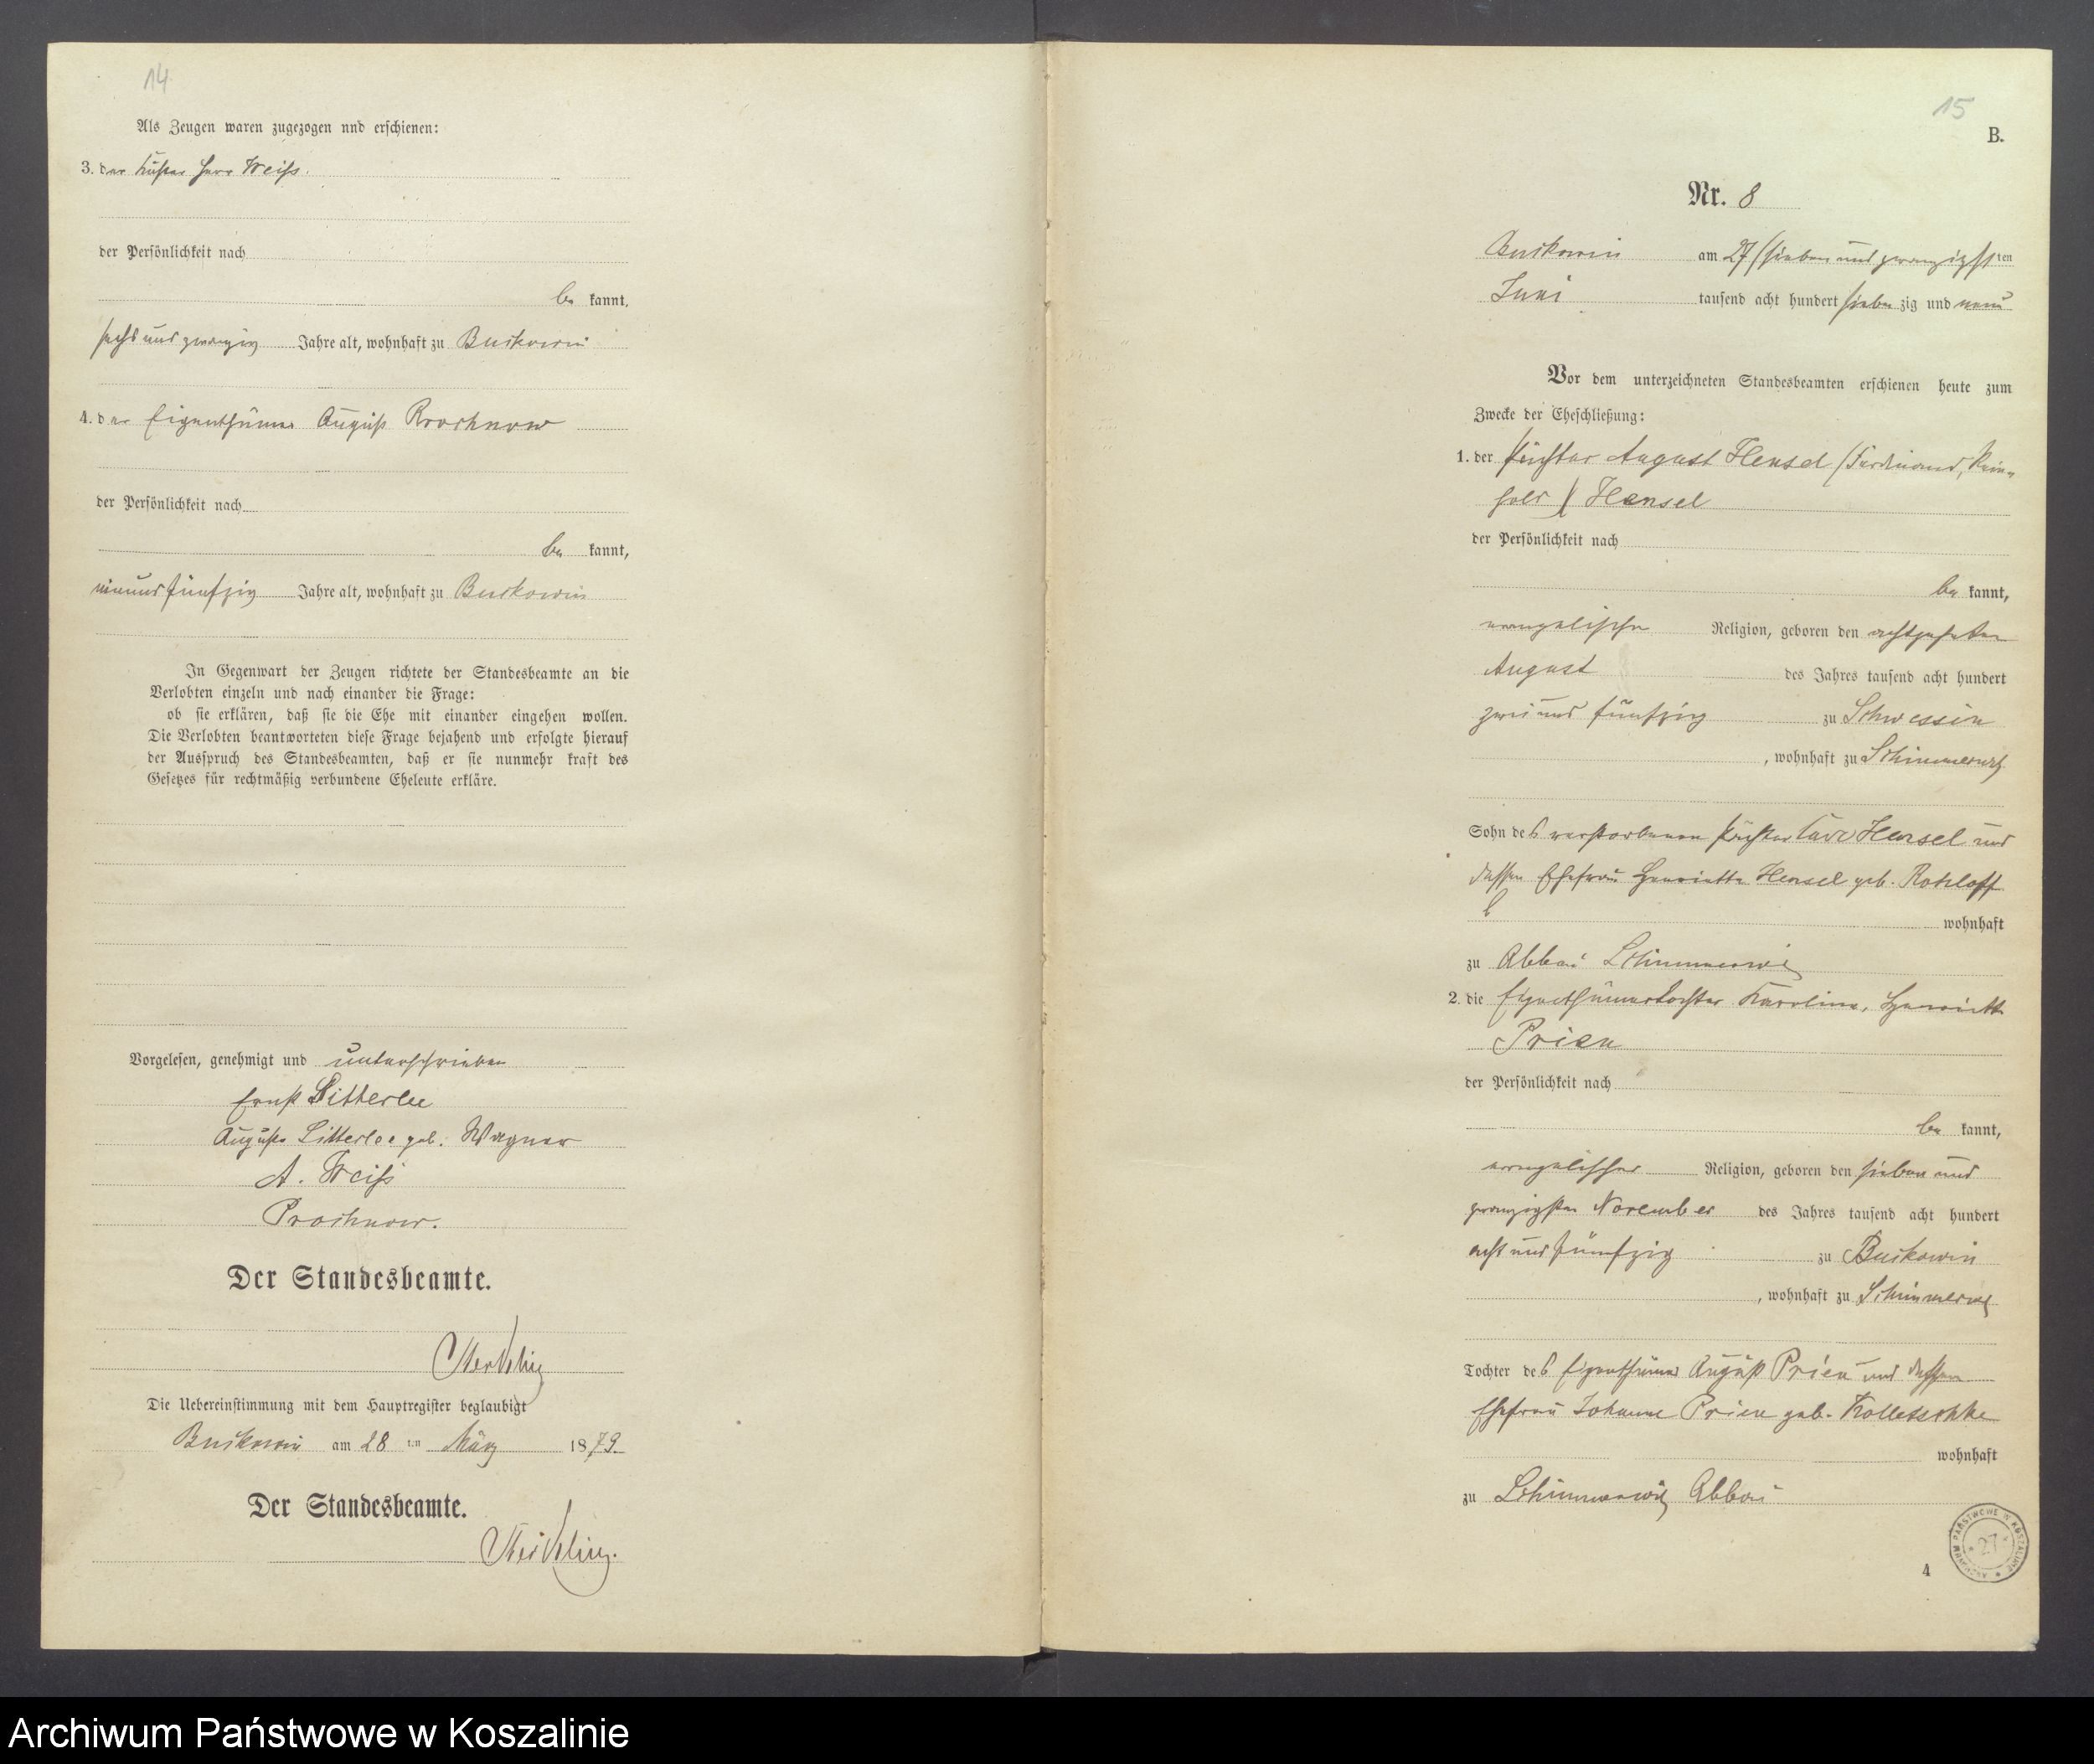 14
Als Zeugen waren zugezogen nnd erschienen:
3. der Küster Herr Weiß.
der Persönlichkeit nach
be kannt,
sechs und zwanzig Jahre alt, wohnhaft zu Buckowin
4. der Eigenthümer August Prochnow
der Persönlichkeit nach
be kannt,
neunundfünfzig Jahre alt, wohnhaft zu Buckowin
In Gegenwart der Zeugen richtete der Standesbeamte an die
Verlobten einzeln und nach einander die Frage:
ob sie erklären, daß sie die Ehe mit einander eingehen wollen.
Die Verlobten beantworteten diese Frage bejahend und erfolgte hierauf
der Ausspruch des Standesbeamten, daß er sie nunmehr kraft des
Gesetzes für rechtmäßig verbundene Eheleute erkläre.
Vorgelesen, genehmigt und unterschrieben
Ernst Litterlee
Auguste Litterlee geb. Wagner
A. Weiß
Prochnow.
Der Standesbeamte.
Die Uebereinstimmung mit dem Hauptregister beglaubigt
Buckowin am 28 ten März 1879.
Der Standesbeamte.
15
B.
Nr. 8
Buckowin am 27 (sieben und zwanzigsten
Juni tausend acht hundert sieben zig und neun
Vor dem unterzeichneten Standesbeamten erschienen heute zum
Zwecke der Eheschließung:
1. der Pächter August Hensel (Ferdinand, Rein-
hold) Hensel
der Persönlichkeit nach
be kannt,
evangelischer Religion, geboren den achtzehnten
August des Jahres tausend acht hundert
zwei und fünfzig zu Schwessin
, wohnhaft zu Schimmerwitz
Sohn des verstorbenen Pächter Carl Hensel und
dessen Ehefrau Henriette Hensel geb. Rotzloff
wohnhaft
zu Abbau Schimmerwitz
2. die Eigenthümertochter Karoline, Henriette
Prien
der Persönlichkeit nach
be kannt,
evangelischer Religion, geboren den sieben und
zwanzigsten November des Jahres tausend acht hundert
acht und fünfzig zu Buckowin
, wohnhaft zu Schimmerwitz
Tochter des Eigenthümer August Prien und dessen
Ehefrau Johanne Prien geb. Kolletschke
wohnhaft
zu Schimmerwitz Abbau
ARCHIWUM PAŃSTWOWE W KOSZALINIE
27
4
Archiwum Państwowe w Koszalinie